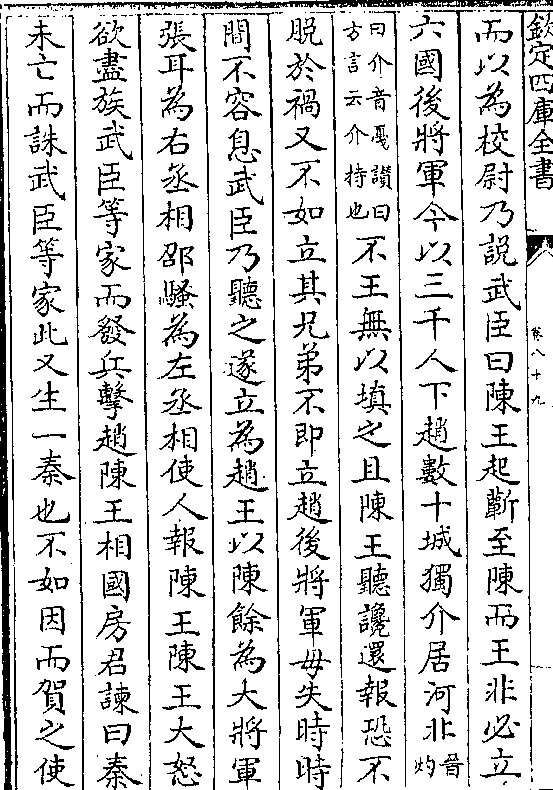 欽定四庫全書
卷八十九
而以為校尉乃說武臣曰陳王起蘄至陳而王非必立
六國後將軍今以三千人下趙數十城獨介居河北晉灼
曰介音戞瓚曰方言云介持也不王無以填之且陳王聽讒還報恐不
脫於禍又不如立其兄弟不即立趙後將軍毋失時時
間不容息武臣乃聽之遂立為趙王以陳餘為大將軍
張耳為右丞相邵騷為左丞相使人報陳王陳王大怒
欲盡族武臣等家而發兵擊趙陳王相國房君諫曰秦
未亡而誅武臣等家此又生一秦也不如因而賀之使